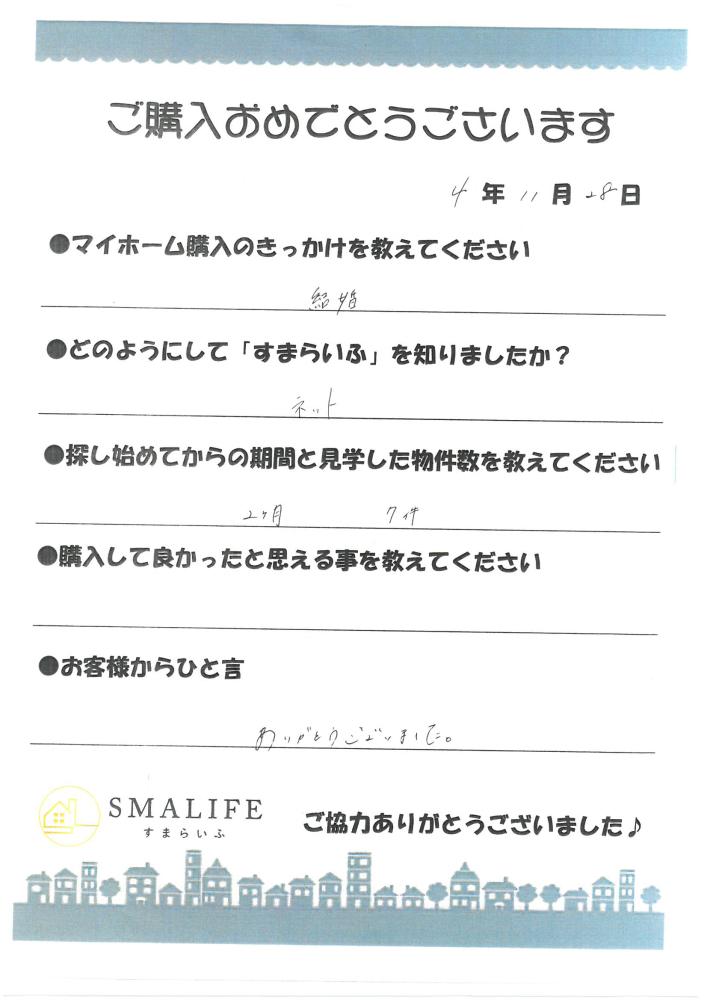 ご購入おめでとうございます
4年11月28日
●マイホーム購入のきっかけを教えてください
結婚
●どのようにして「すまらいふ」を知りましたか？
ネット
●探し始めてからの期間と見学した物件数を教えてください
2ヶ月 7件
●購入して良かったと思える事を教えてください
●お客様からひと言
ありがとうございました。
SMALIFE
すまらいふ
ご協力ありがとうございました♪